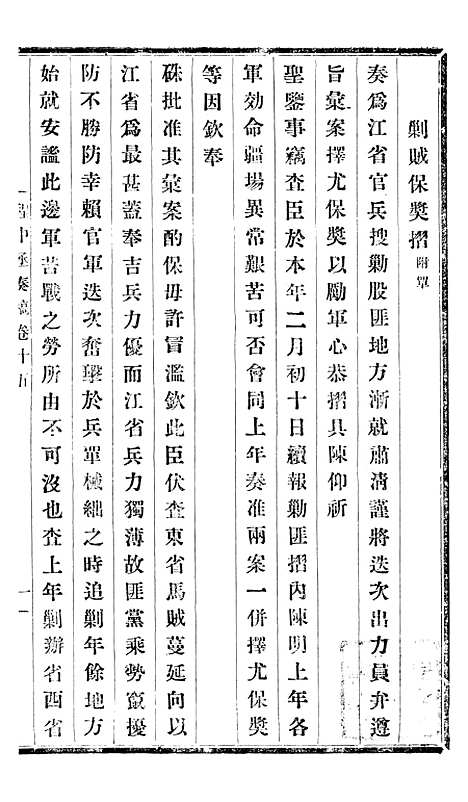 剿賊保奬摺附單
奏爲江省官兵搜剿股匪地方漸就肅清謹將迭次出力員弁遵
旨彙案擇尤保奬以勵軍心恭摺具陳仰祈
聖鑒事竊查臣於本年二月初十日續報剿匪摺內陳明上年各
軍効命疆場異常艱苦可否會同上年奏准兩案一併擇尤保奬
等因欽奉
硃批准其彙案酌保毋許冒濫欽此臣伏查東省馬賊蔓延向以
江省爲最甚蓋奉吉兵力優而江省兵力獨薄故匪黨乘勞竄擾
防不勝防幸賴官軍迭次奮擊於兵單械絀之時追剿年餘地方
始就安謐此邊軍苦戰之勞所由不可沒也查上年剿辦省西省
程中丞奏稿卷十五